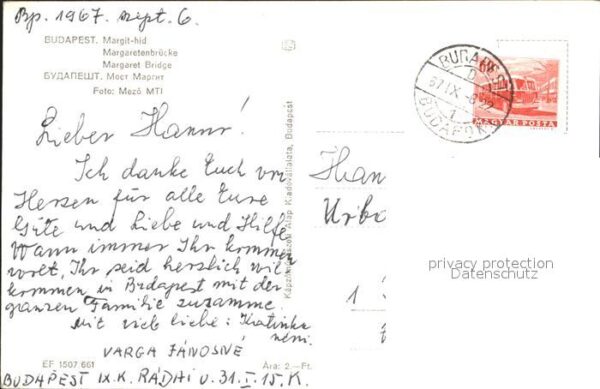 Bp. 1967. szept. 6.
BUDAPEST. Margit-híd
Margaretenbrücke
Margaret Bridge
БУДАПЕШТ. Мост Маргит
Foto: Mező MTI
BUDAPEST
67 IX
BUDAPEST
MAGYAR POSTA
Lieber Hanns!
Ich danke Euch von
Herzen für alle Eure
Güte und Liebe und Hilfe
Wann immer Ihr kommen
wollt, Ihr seid herzlich will
kommen in Budapest mit der
ganzen Familie zusamme.
Mit viel liebe: Katinka
néni.
VARGA JÁNOSNÉ
EF 1507 661
Ára: 2.— Ft.
BUDAPEST IX.K. RÁDAI U. 31. I. 15. K.
Képzőművészeti Alap Kiadóvállalata, Budapest
Han
Urba
1
privacy protection
Datenschutz